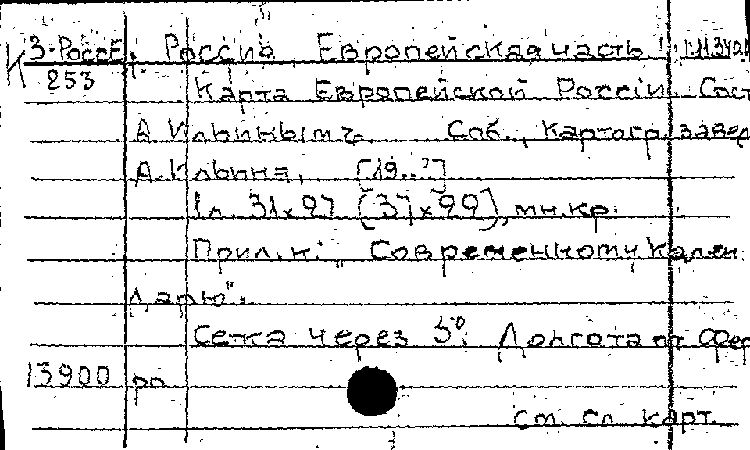 К 3-РоссЕ Россия, Европейская часть
253
Карта Европейской Россіи. Сост
А. Ильинымъ. Соб., Картогр. завед
А. Ильина, [19..?]
1 л. 31х27 (37х29), мн. кр.
Прил. к: „Современному Кален
дарю".
Сетка через 5°. Долгота от Фер
13900 рп
См. сл. карт.